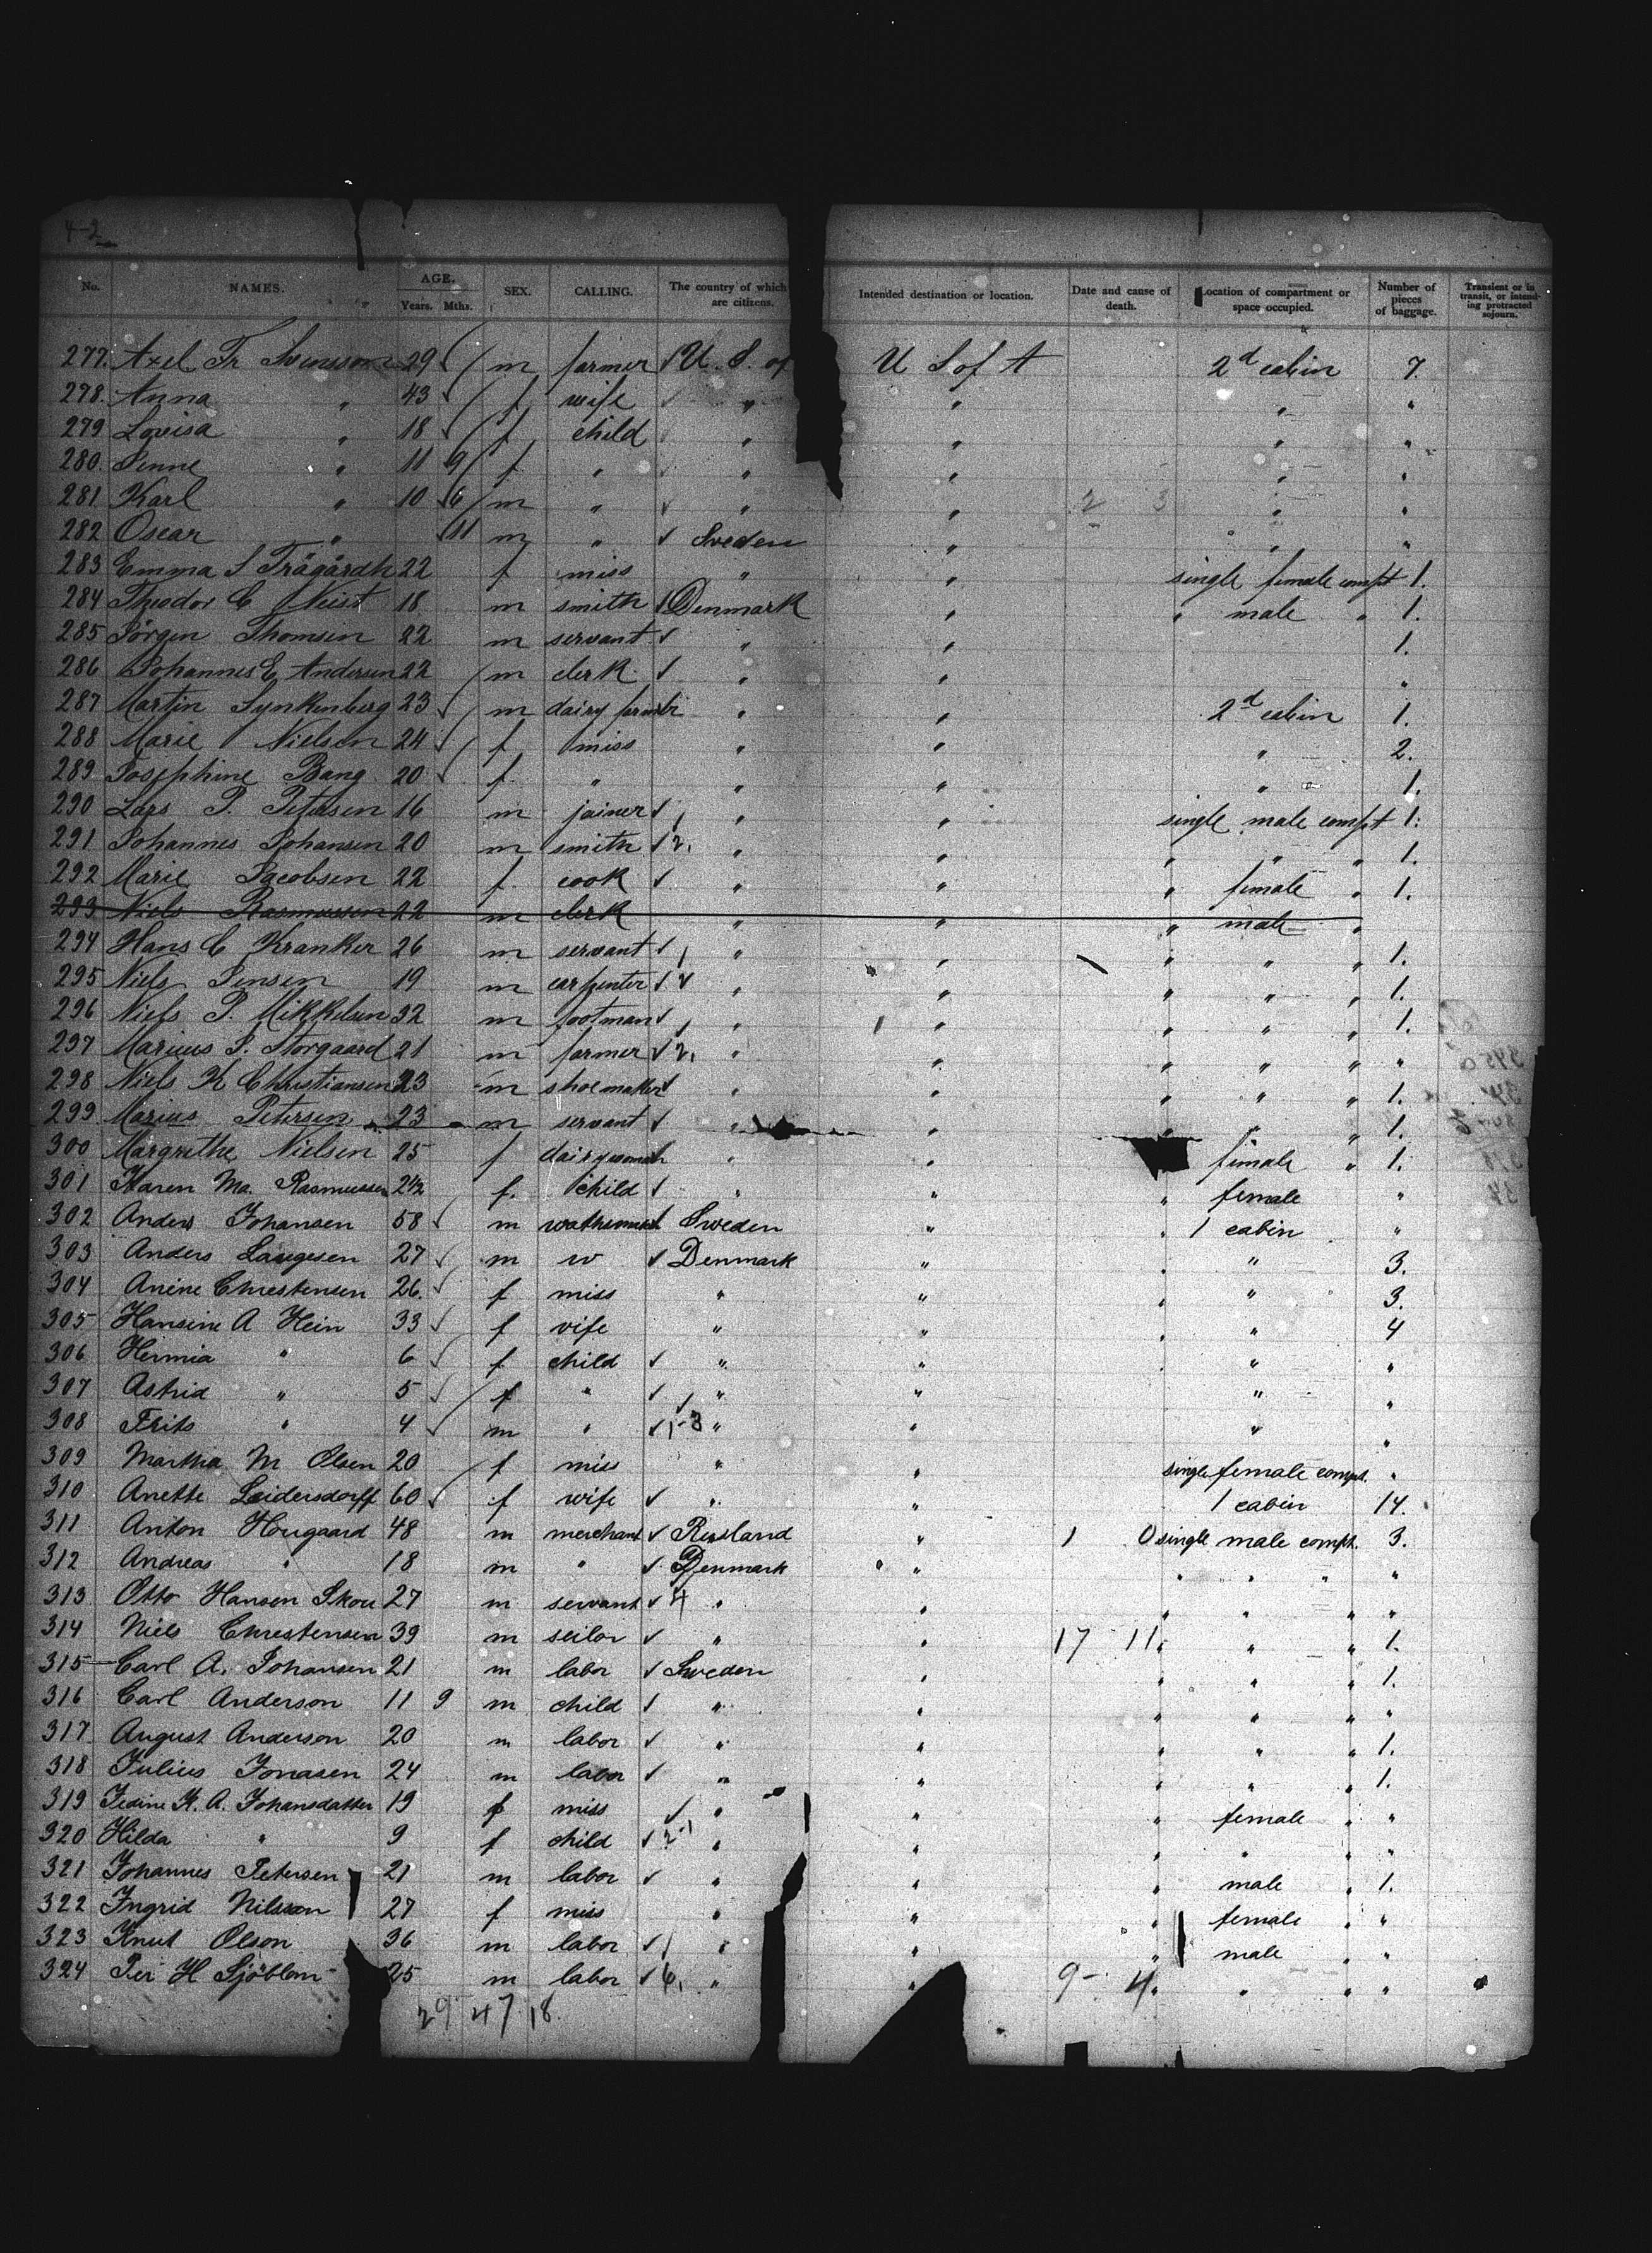 4-2
No. NAMES. AGE. Years. Mths. SEX. CALLING. The country of which are citizens. Intended destination or location. Date and cause of death. Location of compartment or space occupied. Number of pieces of baggage. Transient or in transit, or intending protracted sojourn.
277. Axel Fr Svensson 29 m farmer U. S. of U S of A 2d cabin 7.
278. Anna " 43 f wife " " " "
279 Lovisa " 18 f child " " " "
280. " 11 9 f " " " " "
281 Karl " 10 6 m " " " 2 3 " "
282 Oscar " 11 m " Sweden " " "
283 Emma S Trägårdh 22 f miss " " single female compt 1.
284 Theodor C 18 m smith Denmark " " male " 1.
285 Jörgen Thomsen 22 m servant " " 1.
286 Johannes E Andersen 22 m clerk " " "
287 Martin Lynkenberg 23 m dairy farmer " " 2d cabin 1.
288 Marie Nielsen 24 f miss " " " 2.
289 Josephine Bang 20 f " " " " 1.
290 Lars P. Petersen 16 m joiner " " single male compt 1.
291 Johannes Johansen 20 m smith 2, " " " " " 1.
292 Marie Jacobsen 22 f cook " " " female " 1.
293 Niels Rasmussen 22 m clerk " " " male "
294 Hans C Kranker 26 m servant " " " " " 1.
295 Niels Jensen 19 m carpenter " " " " " 1.
296 Niels P. Mikkelsen 32 m footman " " " " " 1.
297 Marius P. Storgaard 21 m farmer 2, " " " " " "
298 Niels K Christiansen 23 m shoemaker " " " " " 1.
299 Marius Petersen 23 m servant " " " " " 1.
300 Margrethe Nielsen 25 f dairywoman " " female " 1.
301 Karen Ma. Rasmussen 24 f. child " " " female "
302 Anders Johansen 58 m Sweden " " 1 cabin "
303 Anders Laugesen 27 m w Denmark " " " 3.
304 Anine Christensen 26. f miss " " " " 3.
305 Hansine A Hein 33 f vife " " " " 4
306 Hermia " 6 f child " " " "
307 Astrid " 5 f " " " " "
308 Frits " 4 m " 1-3 " " " "
309 Martha M Olsen 20 f miss " " single female compt. "
310 Anette Leidersdorff 60 f wife " " 1 cabin 14.
311 Anton Hougaard 48 m merchant Rusland " 1 0 single male compt. 3.
312 Andreas " 18 m " Denmark " " " " "
313 Otto Hansen Skou 27 m servant 4 " " " " " "
314 Niels Christensen 39 m seilor " " 17 11 " " " 1.
315 Carl A. Johansen 21 m labor Sweden " " " " 1.
316 Carl Anderson 11 9 m child " " " " " "
317 August Anderson 20 m labor " " " " " 1.
318 Julius Jonasen 24 m labor " " " " " 1.
319 Jedine K. A. Johansdatter 19 f miss " " " female " "
320 Hilda " 9 f child 2-1 " " " " " "
321 Johannes Petersen 21 m labor " " " male " 1.
322 Ingrid Nilsson 27 f miss " " " female " "
323 Knut Olson 36 m labor " " " male " "
324 Per H Sjöblom 25 m labor 6, " " 9- 4 " " " "
29 47 18.